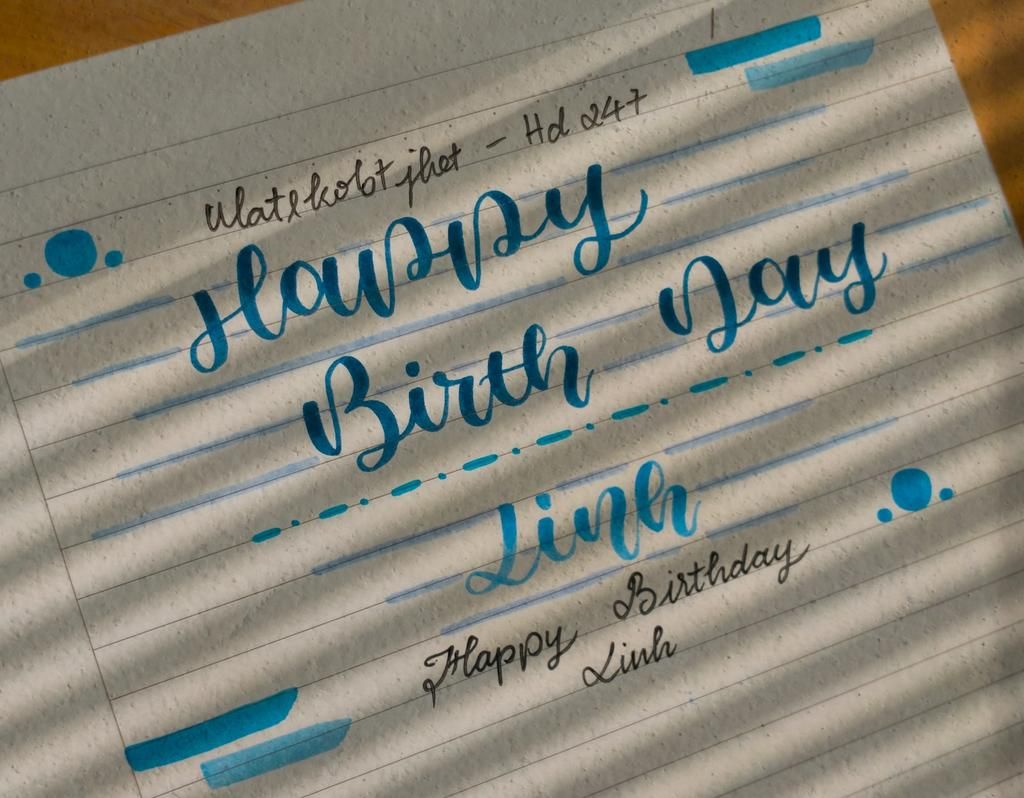 - Hd 247
Happy
Birth Day
Linh
Happy Birthday
Linh